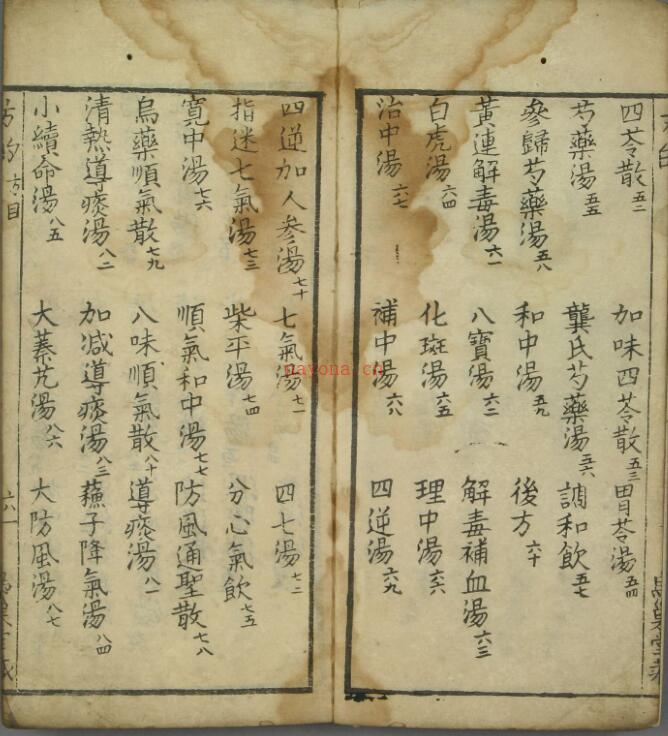 四苓散五二 加味四苓散五三 胃苓湯五四
芍藥湯五五 龔氏芍藥湯五六 調和飲五七
參歸芍藥湯五八 和中湯五九 後方六十
黃連解毒湯六一 八寶湯六二 解毒補血湯六三
白虎湯六四 化斑湯六五 理中湯六六
治中湯六七 補中湯六八 四逆湯六九
四逆加人參湯七十 七氣湯七一 四七湯七二
指迷七氣湯七三 柴平湯七四 分心氣飲七五
寬中湯七六 順氣和中湯七七 防風通聖散七八
烏藥順氣散七九 八味順氣散八十 導痰湯八一
清熱導痰湯八二 加減導痰湯八三 蘓子降氣湯八四
小續命湯八五 大蓁艽湯八六 大防風湯八七
nayona.cn